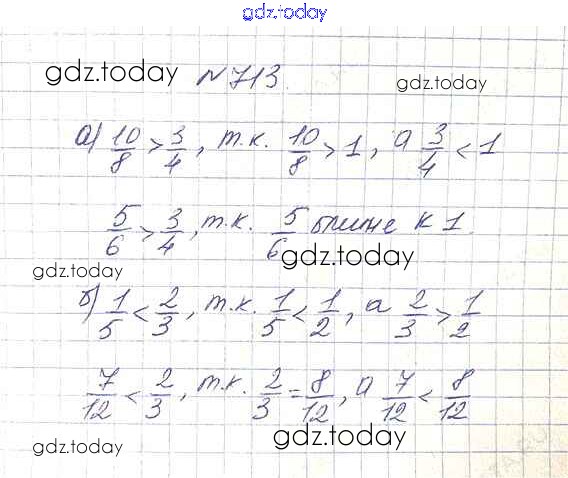 gdz.today
gdz.today №713. gdz.today
а) 10/8 > 3/4, т.к. 10/8 > 1, а 3/4 < 1
5/6 > 3/4, т.к. 5/6 ближе к 1.
gdz.today gdz.today
б) 1/5 < 2/3, т.к. 1/5 < 1/2, а 2/3 > 1/2
7/12 < 2/3, т.к. 2/3 = 8/12, а 7/12 < 8/12
gdz.today gdz.today